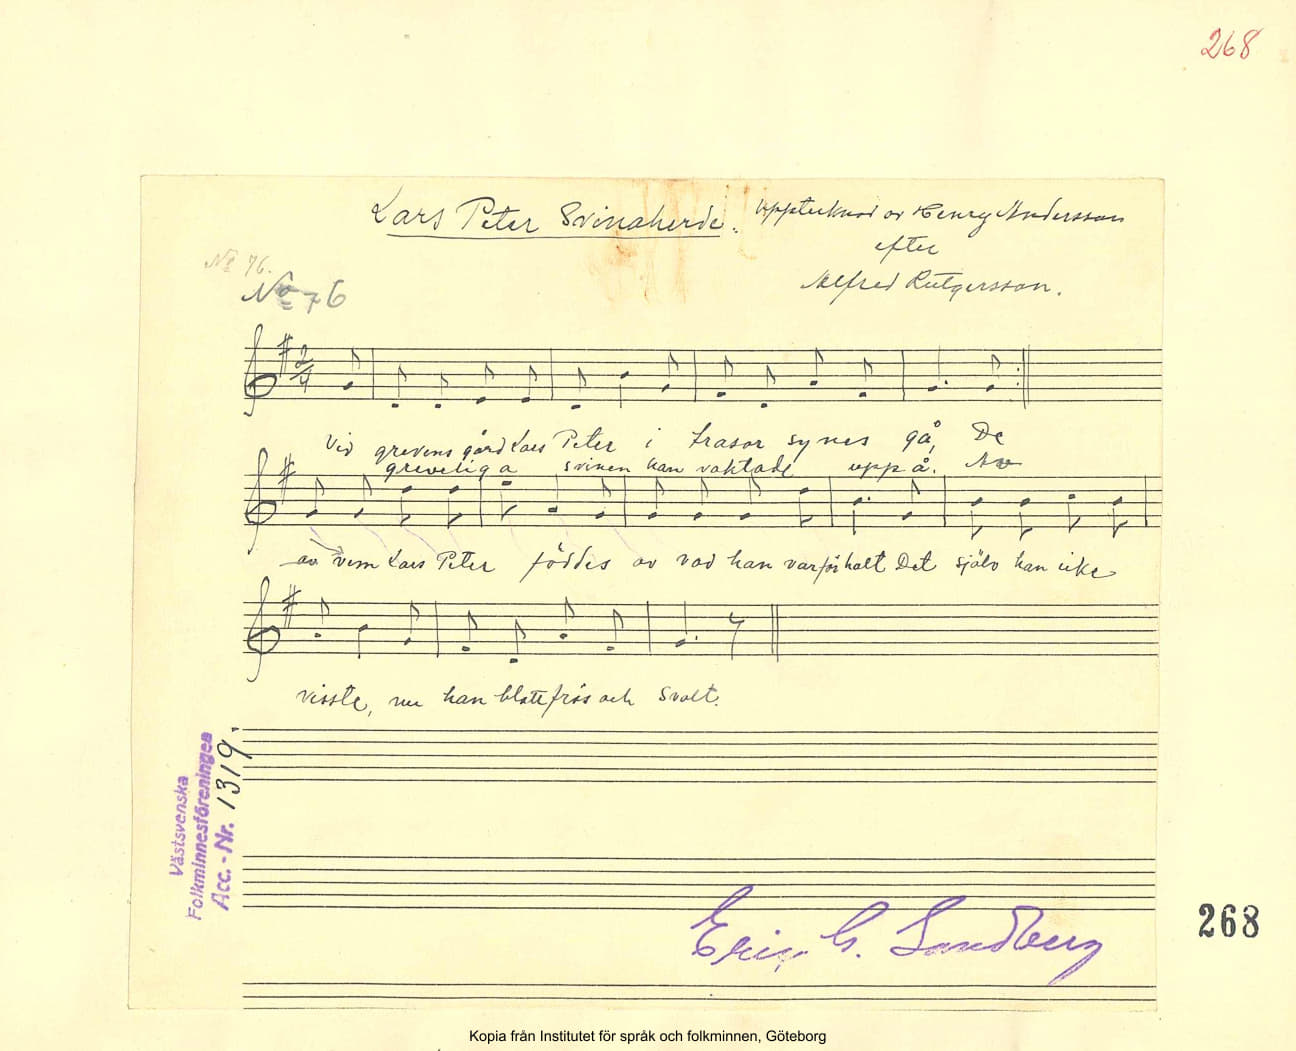 268
Lars Peter Svinaherde.
Upptecknad av Henry Andersson
efter
Alfred Rutgersson.
No 76.
No 76
2/4
Vid grevens gård Lars Peter i trasor synes gå, De
greveliga svinen han vaktade uppå.
av vem Lars Peter föddes av vad han varförhalt Det själv han icke
visste, nu han blott frös och svalt.
Västsvenska
Folkminnesföreningen
Acc.-Nr. 1319.
Eric G. Sandberg
268
Kopia från Institutet för språk och folkminnen, Göteborg